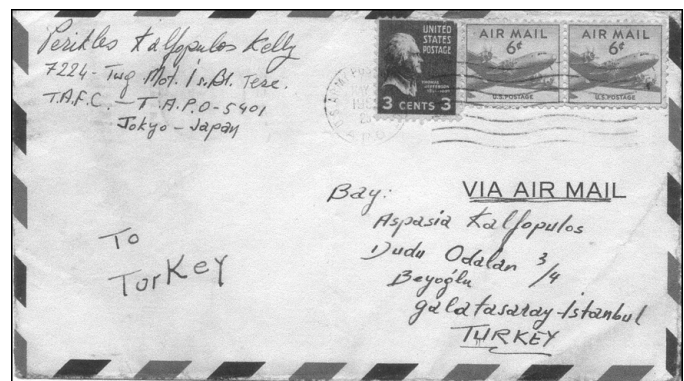 Perikles Kalfopulos Kelly
7224 - Tug Mot. Is. Bl. Terc.
T.A.F.C. - T.A.P.O - 5401
Tokyo - Japan
UNITED
STATES
POSTAGE
THOMAS
JEFFERSON
3 CENTS 3
AIR MAIL
6¢
U.S. POSTAGE
AIR MAIL
6¢
U.S. POSTAGE
VIA AIR MAIL
Bay:
Aspasia Kalfopulos
Dudu Odaları 3/4
Beyoğlu
galatasaray - İstanbul
TURKEY
To
Turkey